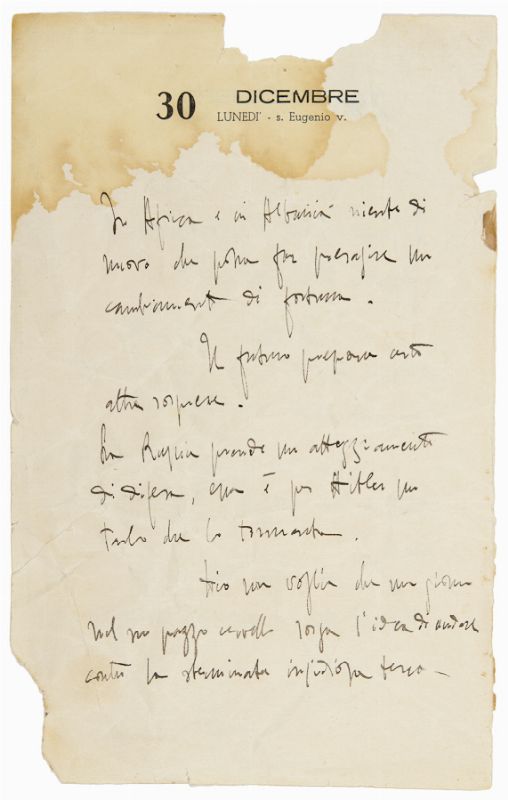 30 DICEMBRE
LUNEDI' - s. Eugenio v.
In Africa e in Albania niente di
nuovo che possa far presagire un
cambiamento di fortuna.
Il futuro prepara certo
altre sorprese.
La Russia prende un atteggiamento
di difesa, essa è per Hitler un
tarlo che lo tormenta.
Dio non voglia che un giorno
nel suo pazzo cervello sorga l'idea di andare
contro la sterminata insidiosa terra